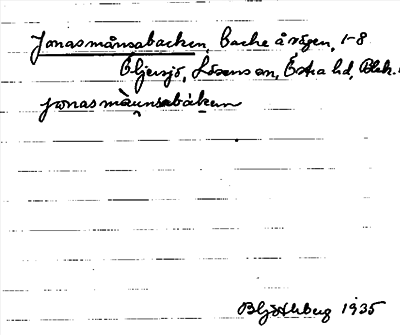 Jonasmånsabacken, backe å vägen, 1-8
Oljersjö, Lösens sn, Östra hd, Blek.
jonasmàunsabákan
1935